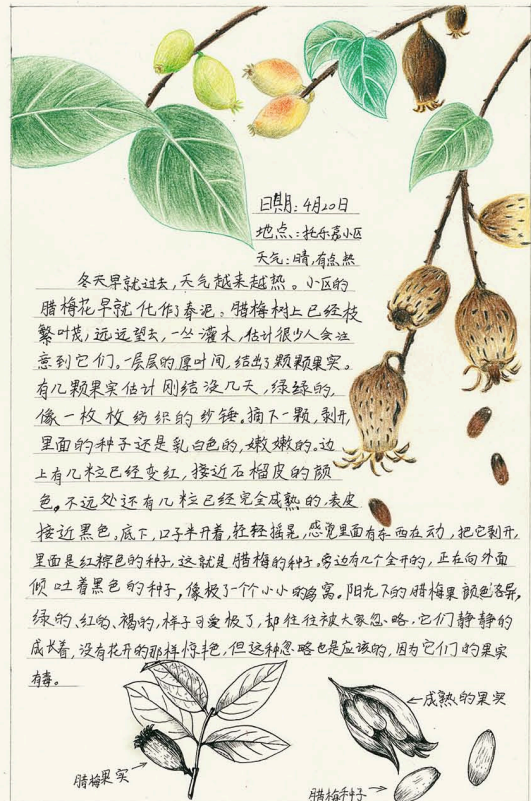 日期：4月20日
地点：托乐嘉小区
天气：晴，有点热
冬天早就过去，天气越来越热。小区的
腊梅花早就化作了春泥，腊梅树上已经枝
繁叶茂，远远望去，一丛灌木，估计很少人会注
意到它们。一层层的厚叶间，结出了颗颗果实。
有几颗果实估计刚结没几天，绿绿的，
像一枚枚纺织的纱锤。摘下一颗，剥开，
里面的种子还是乳白色的，嫩嫩的。边
上有几粒已经变红，接近石榴皮的颜
色。不远处还有几粒已经完全成熟的，表皮
接近黑色。底下，口子半开着，轻轻摇晃，感觉里面有东西在动，把它剥开，
里面是红棕色的种子，这就是腊梅的种子。旁边有几个全开的，正在向外面
倾吐着黑色的种子，像极了一个个小小的鸟窝。阳光下的腊梅果颜色各异，
绿的、红的、褐的，样子可爱极了，却往往被大家忽略。它们静静的
成长着，没有花开的那样惊艳，但这种忽略也是应该的，因为它们的果实
有毒。
成熟的果实
腊梅果实
腊梅种子